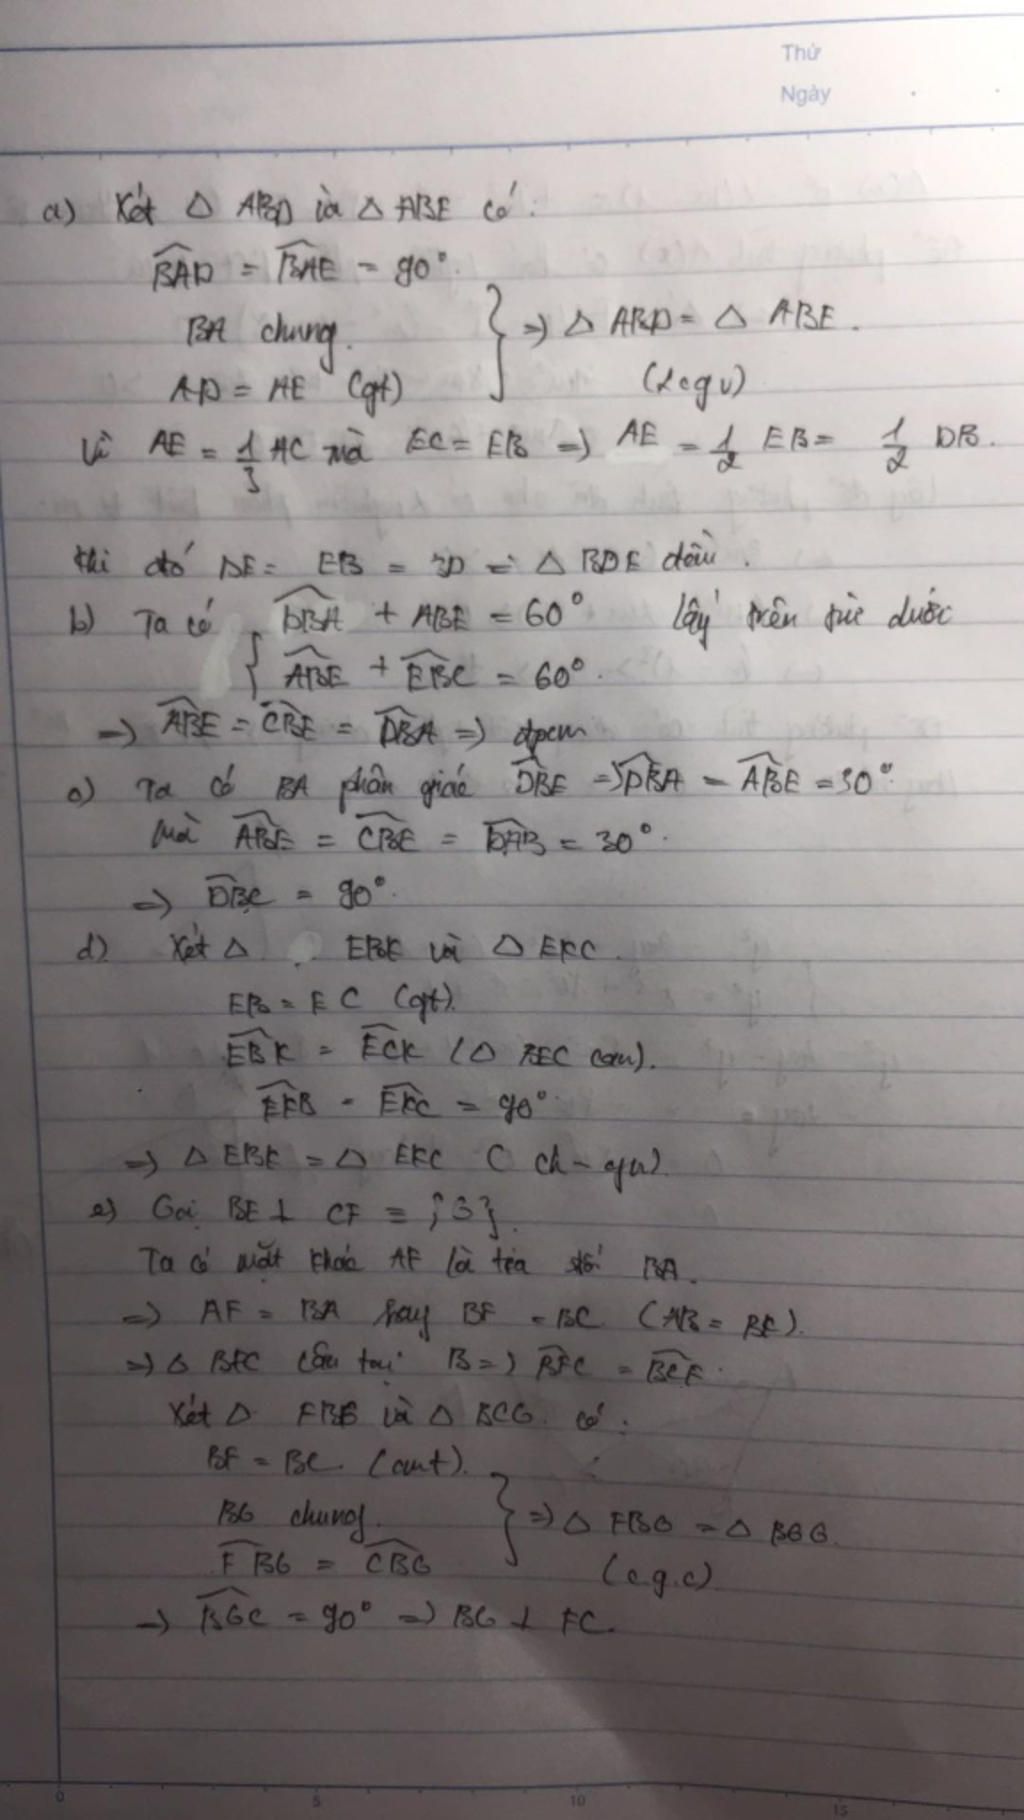 Thứ
Ngày
a) Xét △ ABD và △ ABE có:
BAD = BAE = 90°.
BA chung.
AD = AE (gt)
} => △ ABD = △ ABE.
(2cgv)
Vì AE = 1/3 AC mà EC = EB => AE = 1/2 EB = 1/2 DB.
Khi đó DE = EB = BD => △ BDE đều.
b) Ta có { DBA + ABE = 60° lấy trên trừ dưới
ABE + EBC = 60°.
=> ABE = CBE = DBA => đpcm
c) Ta có BA phân giác DBE => DBA = ABE = 30°
Mà ABE = CBE = DAB = 30°.
=> DBC = 90°.
d) Xét △ EBK và △ EKC
EB = EC (gt).
EBK = ECK (△ BEC cân).
EKB = EKC = 90°
=> △ EBK = △ EKC (ch - gn)
e) Gọi BE ⊥ CF = {G}.
Ta có mặt khác AF là tia đối BA.
=> AF = BA hay BF = BC (AB = BK).
=> △ BFC cân tại B => BFC = BCF.
Xét △ FBG và △ BCG có:
BF = BC (cmt).
BG chung.
FBG = CBG
} => △ FBG = △ BGG.
(c.g.c)
=> BGC = 90° => BG ⊥ FC.
0 5 10 15